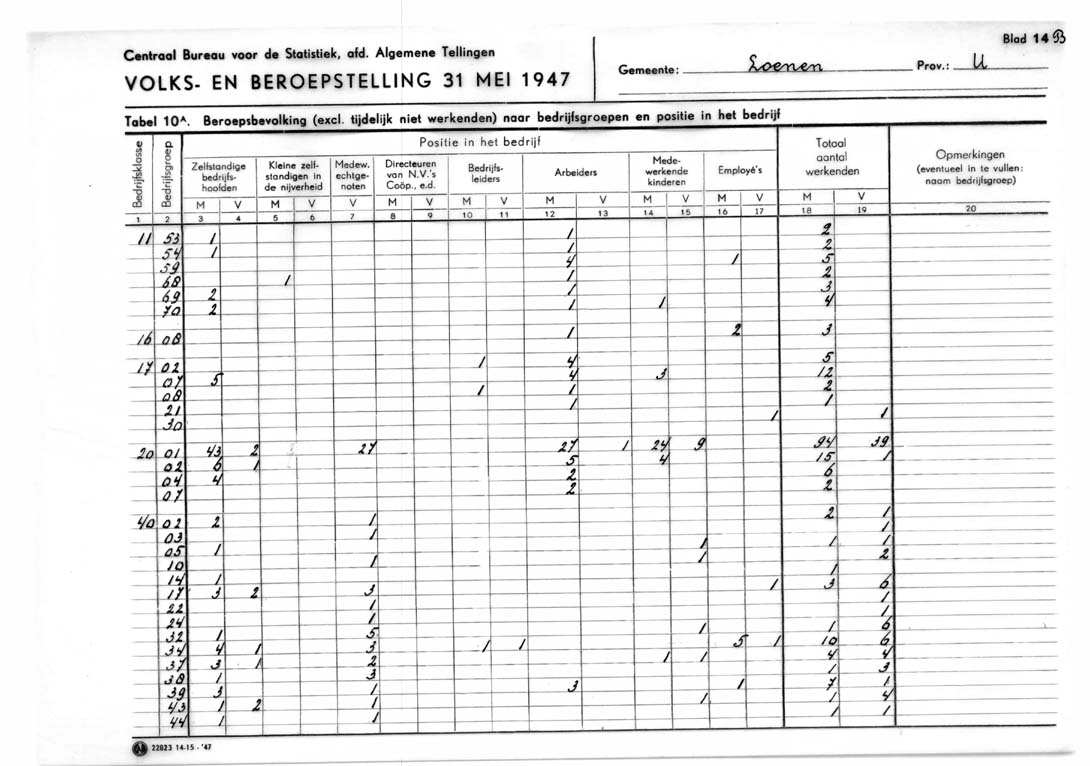 Blad 14 B
Centraal Bureau voor de Statistiek, afd. Algemene Tellingen
VOLKS- EN BEROEPSTELLING 31 MEI 1947
Gemeente: Loenen Prov.: U
Tabel 10A. Beroepsbevolking (excl. tijdelijk niet werkenden) naar bedrijfsgroepen en positie in het bedrijf
Bedrijfsklasse
Bedrijfsgroep
Positie in het bedrijf
Zelfstandige bedrijfs-hoofden
Kleine zelf-standigen in de nijverheid
Medew. echtge-noten
Directeuren van N.V.'s Coöp., e.d.
Bedrijfs-leiders
Arbeiders
Mede-werkende kinderen
Employé's
Totaal aantal werkenden
Opmerkingen (eventueel in te vullen: naam bedrijfsgroep)
M V M V V M V M V M V M V M V M V
1 2 3 4 5 6 7 8 9 10 11 12 13 14 15 16 17 18 19 20
11 53 1 1 2
54 1 1 2
59 4 1 5
68 1 1 2
69 2 1 3
70 2 1 1 4
16 08 1 2 3
17 02 1 4 5
07 5 4 3 12
08 1 1 2
21 1 1
30 1 1
20 01 43 2 27 27 1 24 9 94 39
02 6 1 5 4 15 1
04 4 2 6
07 2 2
40 02 2 1 2 1
03 1 1
05 1 1 1 1
10 1 1 2
14 1 1
17 3 2 3 1 3 6
22 1 1
24 1 1
32 1 5 1 1 6
34 4 1 3 1 1 5 1 10 6
37 3 1 2 1 1 4 4
38 1 3 1 3
39 3 1 3 1 7 1
43 1 2 1 1 1 4
44 1 1 1 1
22823 14-15 - '47